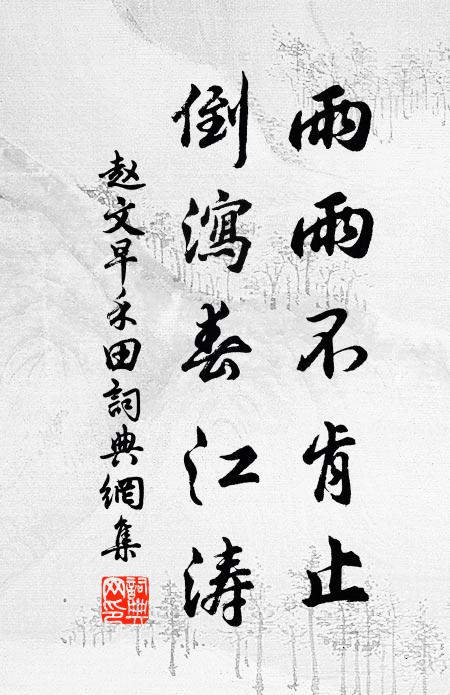 雨雨不肯止
倒瀉春江涛
赵文早禾田詞典網集
詞典网印